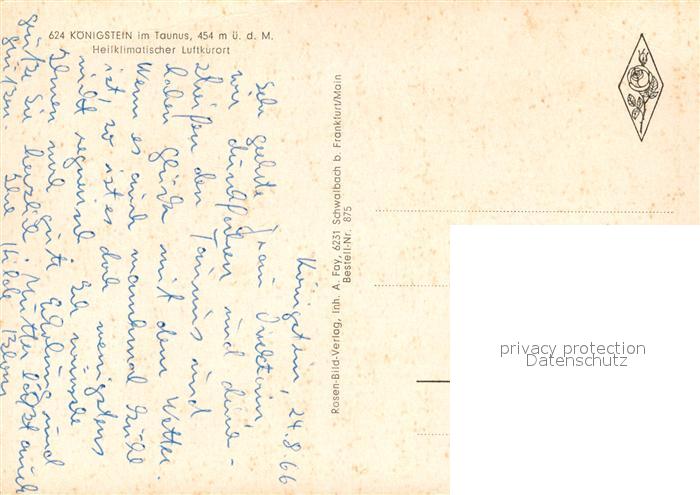 624 KÖNIGSTEIN im Taunus, 454 m ü. d. M.
Heilklimatischer Luftkurort
Königstein, 24.8.66
Sehr geehrte Frau Direktorin
wir durchfahren und durch-
streifen den Taunus und
haben Glück mit dem Wetter.
Wenn es auch manchmal trübe
ist, so ist es doch wenigstens
nicht regnerisch. Ich wünsche
Ihnen noch gute Erholung und
grüße Sie herzlich. Mutter läßt auch
grüßen. Ihre Hilde
Rosen-Bild-Verlag, Inh. A. Fay, 6231 Schwalbach b. Frankfurt/Main
Bestell-Nr. 875
privacy protection
Datenschutz